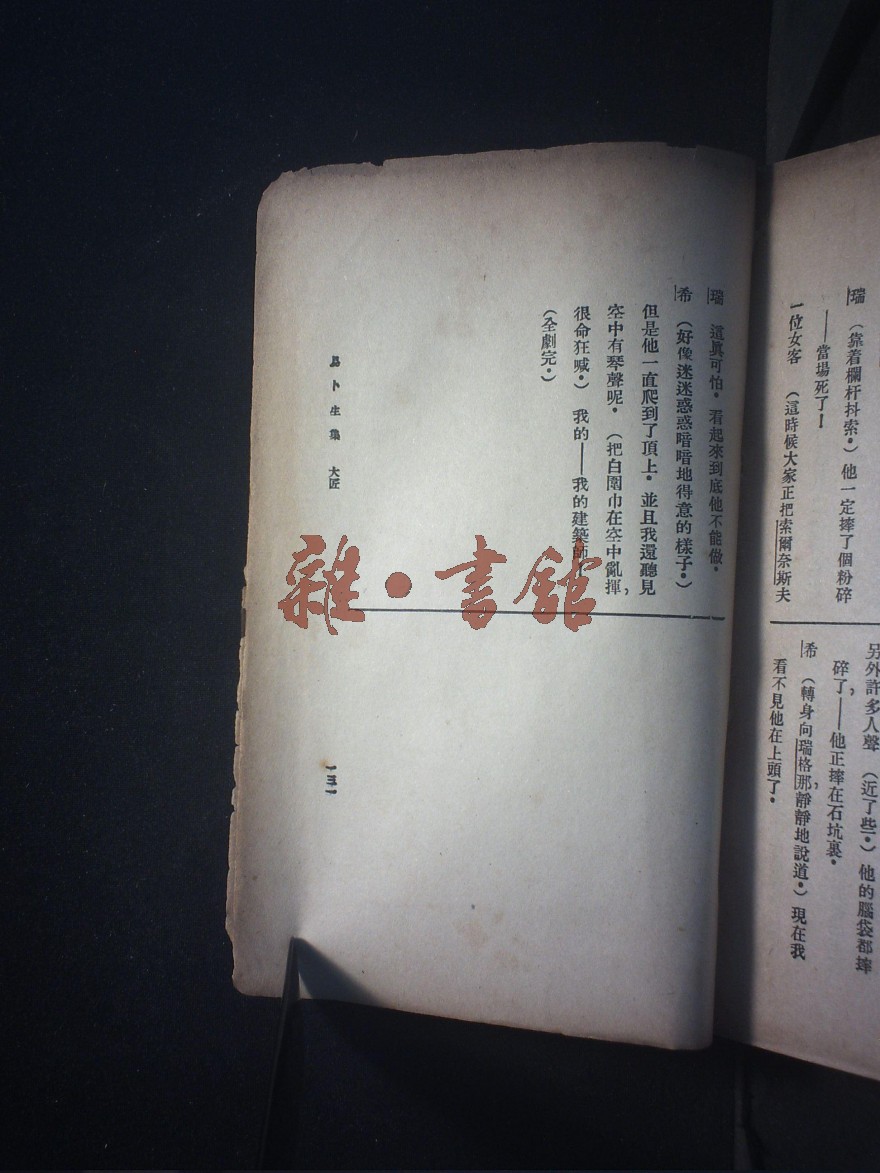 瑞 （靠着欄杆抖索．）他一定摔了個粉碎
——當場死了！
一位女客 （這時候大家正把索爾奈斯夫
另外許多人聲 （近了些．）他的腦袋都摔
碎了，——他正摔在石坑裏．
希 （轉身向瑞格那，靜靜地說道．）現在我
看不見他在上頭了．
瑞 這眞可怕．看起來到底他不能做．
希 （好像迷迷惑惑暗暗地得意的樣子．）
但是他一直爬到了頂上．並且我還聽見
空中有琴聲呢．（把白圍巾在空中亂揮，
很命狂喊．）我的——我的建築師
（全劇完．）
易卜生集 大匠
一三一
雜・書館